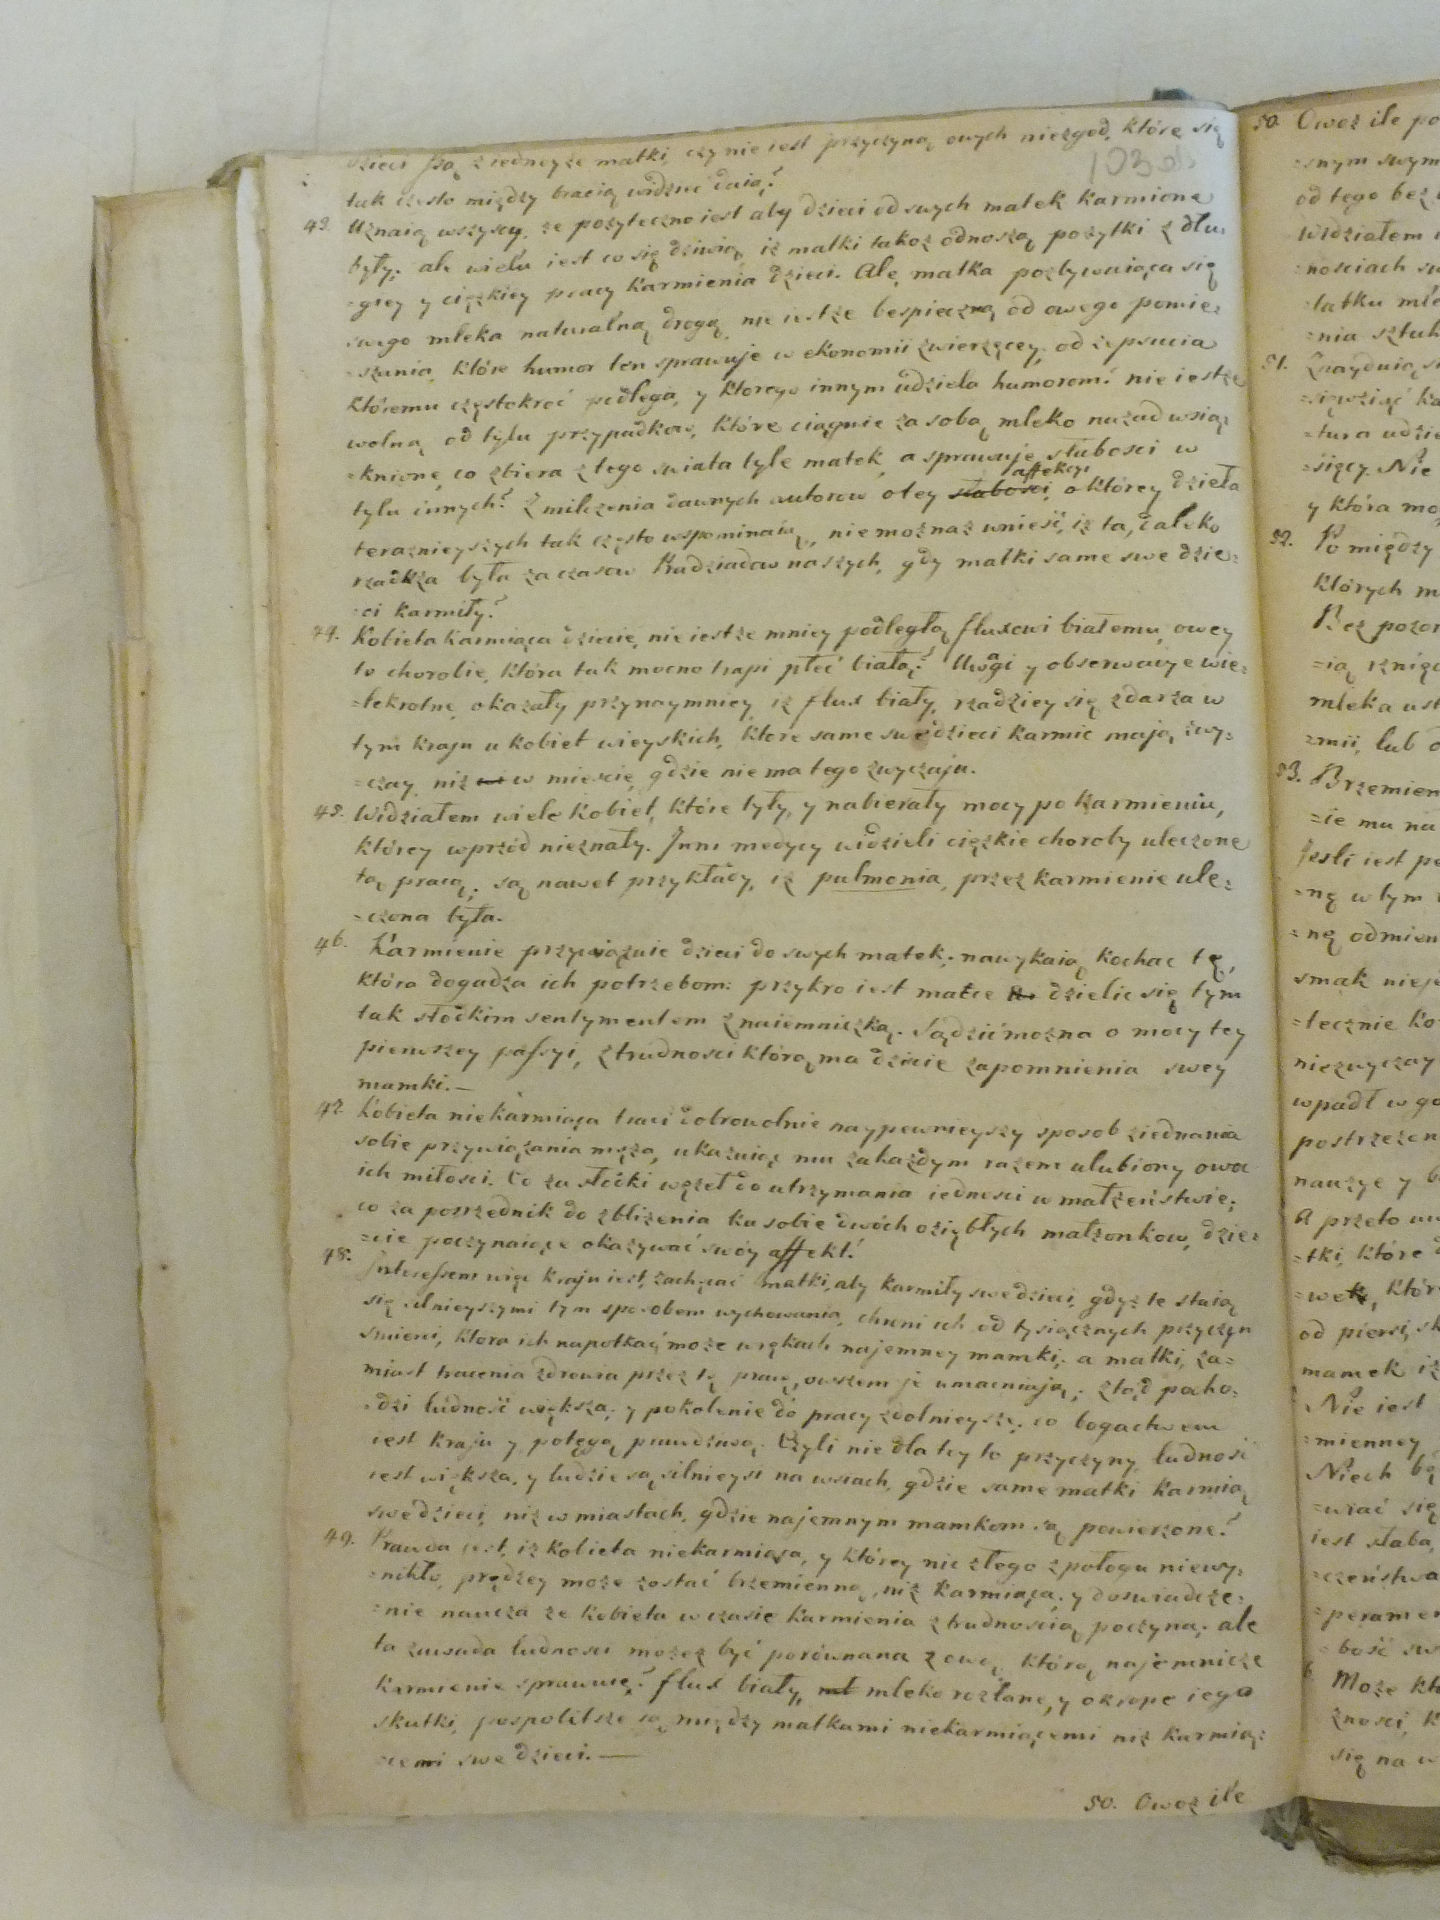 dzieci są z iedneyże matki, czy nie iest przyczyną owych niezgod, które się
103
tak często między bracią widzieć daią?
43. Uznaią wszyscy, że pożyteczno iest aby dzieci od swych matek karmione
były; ale wielu iest co się dziwią, iż matki takoż odnoszą pożytki z dłu:
=giey y cięzkiey pracy karmienia dzieci. Ale, matka pozbywaiąca się
swego mleka naturalną drogą, nie iestże bespieczną od owego pomie:
=szania, które humor ten sprawuje w ekonomii zwierzęcey, od zepsucia
któremu częstokroć podlega, y którego innym udziela humorom? nie iestże
wolną od tylu przypadkow, które ciągnie za sobą mleko nazad wsią:
=knione, co zbiera z tego swiata tyle matek, a sprawuje słabosci w
tylu innych? Z milczenia dawnych autorow o tey słabosci affekcyi, o którey dzieła
teraznieyszych tak często wspominaią, nie możnaż wnieść, iż ta, daleko
rzadsza była za czasow Pradziadow naszych, gdy matki same swe dzie:
=ci karmiły?
44. Kobieta karmiąca dziecie, nie iestże mniey podległą fluxowi białemu, owey
to chorobie, która tak mocno trapi płeć białą? Uwagi y obserwacye wie:
=lekrotne, okazały przynaymniey, iż flux biały, rzadziey się zdarza w
tym kraju u kobiet wieyskich, ktore same swe dzieci karmic mają zwy:
=czay, niż w miescie, gdzie nie ma tego zwyczaju.
45. Widziałem wiele kobiet, które tyły, y nabierały mocy po karmieniu,
którey wprzód nieznały. Inni medycy widzieli cięzkie choroby uleczone
tą pracą; są nawet przykłady, iż pulmonia, przez karmienie ule:
=czona była.
46. Karmienie przywiązuie dzieci do swych matek; nawykaią kochac tę,
która dogadza ich potrzebom: przykro iest matce dzielic się tym
tak słodkim sentymentem z naiemniczką. Sądzić można o mocy tey
pierwszey passyi, z trudnosci którą ma dziecie zapomnienia swey
mamki.—
47. Kobieta niekarmiąca traci dobrowolnie naypewnieyszy sposob ziednania
sobie przywiązania męża, ukazuiąc mu zakażdym razem ulubiony owoc
ich miłosci. Co za słodki węzeł do utrzymania iednosci w małżeństwie;
co za posrzednik do zbliżenia ku sobie dwóch oziębłych małżonkow, dzie:
=cie poczynaiące okazywać swóy affekt!
48. Interessem więc kraju iest, zachęcać matki, aby karmiły swe dzieci, gdyż te staią
się silnieyszymi tym sposobem wychowania, chroni ich od tysiącznych przyczyn
smierci, ktora ich napotkać może w rękach najemney mamki; a matki, za=
miast tracenia zdrowia przez tę pracę, owszem je umacniają; ztąd pocho:
=dzi ludność większa, y pokolenie do pracy zdolnieysze; co bogactwem
iest kraju y potęgą prawdziwą. Czyli nie dla tey to przyczyny, ludność
iest większa, y ludzie są silnieysi na wsiach, gdzie same matki karmią
swe dzieci, niż w miastach, gdzie najemnym mamkom są powierzone?
49. Prawda iest, iż kobieta niekarmiąca, y którey nic złego z połogu niewy:
=nikło, prędzey może zostać brzemienną, niż karmiąca; y doswiadcze:
=nie naucza że kobieta w czasie karmienia z trudnoscią poczyna; ale
ta zawada ludnosci możeż być porównana z ową, którą najemnicze
karmienie sprawuie? flux biały, mleko rozlane, y okropne iego
skutki, pospolitsze są między matkami niekarmiącemi niż karmią:
=cemi swe dzieci.—
50. Owoż ile
50. Owoż ile po
=snym swym
od tego bez
Widziałem
=nosciach sw
=latku mle
=nia sztuk
51.
=tura udzie
y która mo
52. Po między
których m
Bez pozor
mleka ust
=mii, lub o
53. Brzemien
=ie ma na
Jesli iest pe
=ną w tym
=ną odmien
smak nieje
=tecznie ko
niezwyczay
wpadł w go
postrzezen
A przeto
=tki, które
od piersi, sk
mamek iż
Nie iest
=mienney
Niech bę
=wać się
iest słaba,
=czeństwa
=peramen
=bość sw
Może kt
się na w